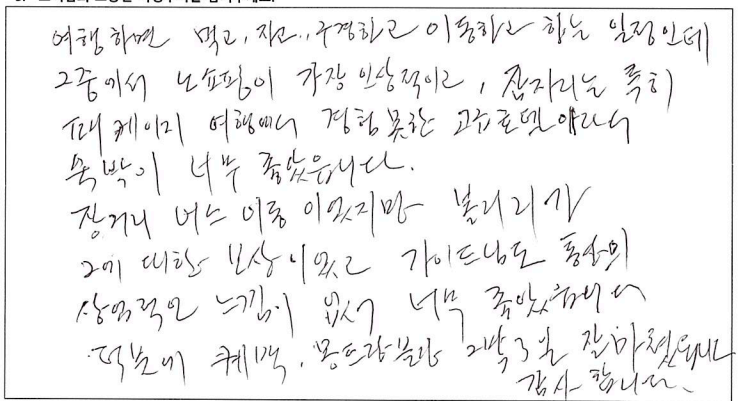 여행하면 먹고, 자고, 구경하고 이동하고 하는 일정인데
그중에서 노쇼핑이 가장 인상적이고, 잠자리는 특히
패케이지 여행에서 경험 못한 고급호텔이라서
숙박이 너무 좋았읍니다.
장거리 버스 이동 이었지만 볼거리가
그에 대한 보상이었고 가이드님도 통상의
상업적인 느낌이 없어 너무 좋았읍니다
덕분에 퀘백, 몽트랑블랑 2박3일 잘 마쳤읍니다
감사 합니다.